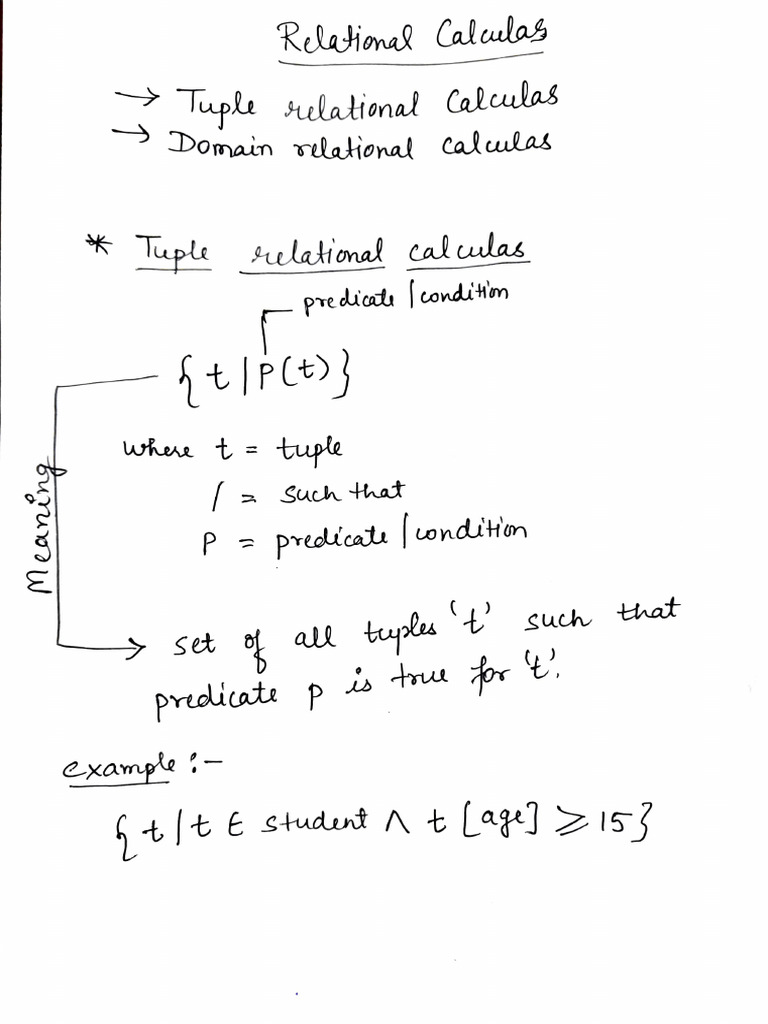 Relational Calculas
→ Tuple relational Calculas
→ Domain relational calculas
* Tuple relational calculas
predicate / condition
{ t / P(t) }
where t = tuple
/ = such that
P = predicate / condition
Meaning
→ set of all tuples 't' such that
predicate p is true for 't'.
example :-
{ t / t ∈ student ∧ t [age] ≥ 15 }